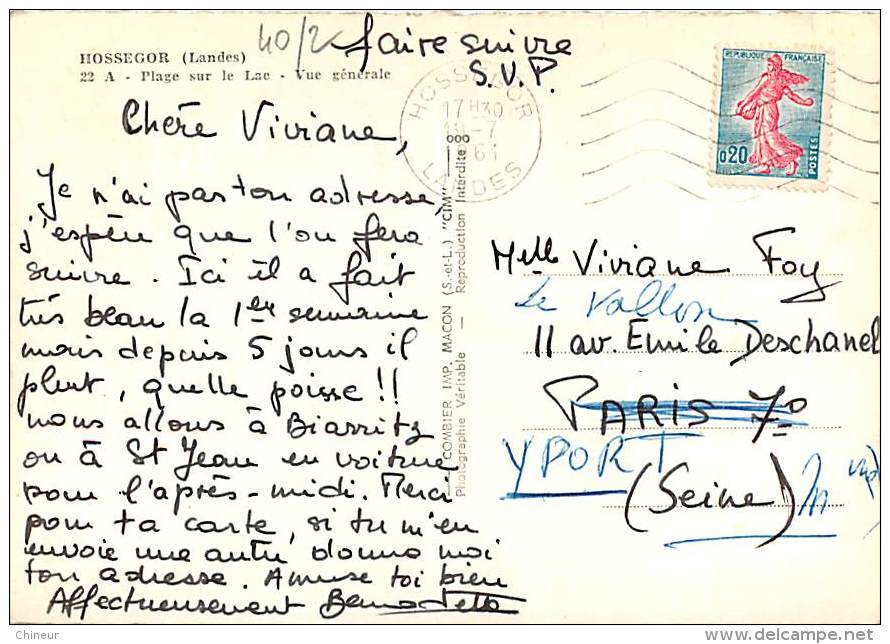 HOSSEGOR (Landes)
22 A - Plage sur le Lac - Vue générale
40/2
faire suivre
S.V.P.
HOSSEGOR
17 H 30
18-7
1961
LANDES
REPUBLIQUE FRANÇAISE
0,20
POSTES
Chère Viviane,
Je n'ai pas ton adresse,
j'espère que l'on fera
suivre. Ici il a fait
très beau la 1ère semaine
mais depuis 5 jours il
pleut, quelle poisse !!
nous allons à Biarritz
ou à St Jean en voiture
pour l'après-midi. Merci
pour ta carte, si tu m'en
envoie une autre donne moi
ton adresse. Amuse toi bien
Affectueusement Bernadette
COMBIER IMP. MACON (S.-et-L.) "CIM"
Photographie Véritable — Reproduction Interdite
Melle Viviane Foy
Le Vallon
11 av. Emile Deschanel
PARIS 7°
YPORT
(Seine) Mme
Chineur
delcampe.net